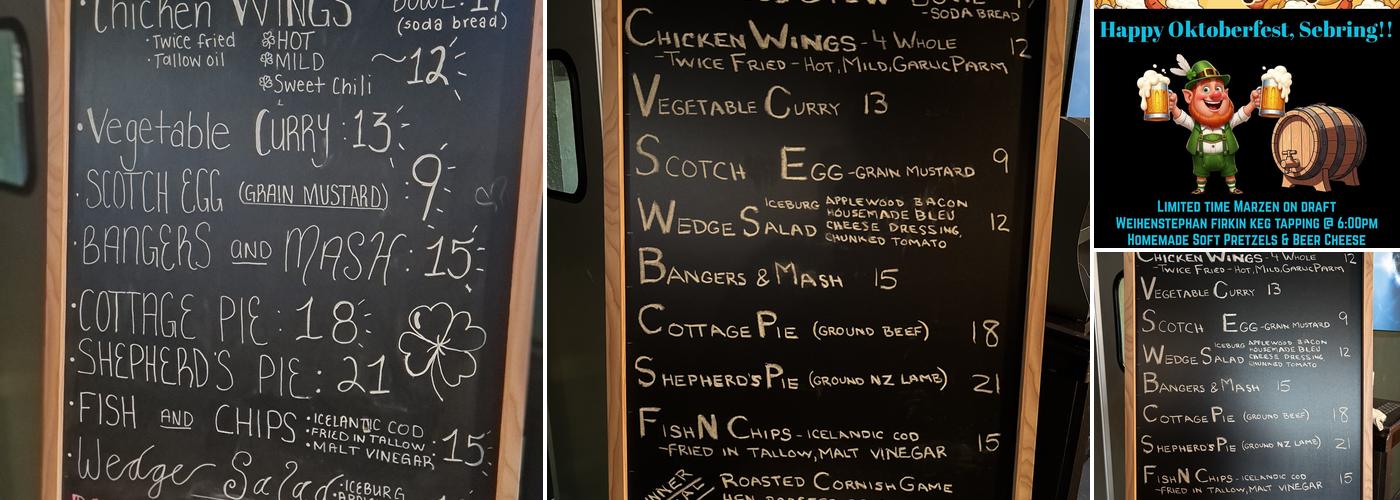 Chicken WINGS
BOWL: 17
(soda bread)
·Twice fried
·Tallow oil
HOT
MILD
Sweet Chili
~12
·Vegetable CURRY: 13
·SCOTCH EGG (GRAIN MUSTARD) : 9
·BANGERS AND MASH: 15
·COTTAGE PIE: 18
·SHEPHERD'S PIE: 21
·FISH AND CHIPS
·ICELANTIC COD
·FRIED IN TALLOW
·MALT VINEGAR
: 15
·Wedge Salad
·ICEBURG
-SODA BREAD
CHICKEN WINGS - 4 WHOLE 12
-TWICE FRIED - HOT, MILD, GARLIC PARM
VEGETABLE CURRY 13
SCOTCH EGG -GRAIN MUSTARD 9
WEDGE SALAD 12
ICEBURG APPLEWOOD BACON
HOUSEMADE BLEU
CHEESE DRESSING,
CHUNKED TOMATO
BANGERS & MASH 15
COTTAGE PIE (GROUND BEEF) 18
SHEPHERD'S PIE (GROUND NZ LAMB) 21
FISH N CHIPS - ICELANDIC COD 15
-FRIED IN TALLOW, MALT VINEGAR
ROASTED CORNISH GAME
Happy Oktoberfest, Sebring!!
LIMITED TIME MARZEN ON DRAFT
WEIHENSTEPHAN FIRKIN KEG TAPPING @ 6:00PM
HOMEMADE SOFT PRETZELS & BEER CHEESE
CHICKEN WINGS - 4 WHOLE 12
-TWICE FRIED - HOT, MILD, GARLIC PARM
VEGETABLE CURRY 13
SCOTCH EGG -GRAIN MUSTARD 9
WEDGE SALAD 12
ICEBURG APPLEWOOD BACON
HOUSEMADE BLEU
CHEESE DRESSING
CHUNKED TOMATO
BANGERS & MASH 15
COTTAGE PIE (GROUND BEEF) 18
SHEPHERD'S PIE (GROUND NZ LAMB) 21
FISH N CHIPS - ICELANDIC COD 15
-FRIED IN TALLOW, MALT VINEGAR